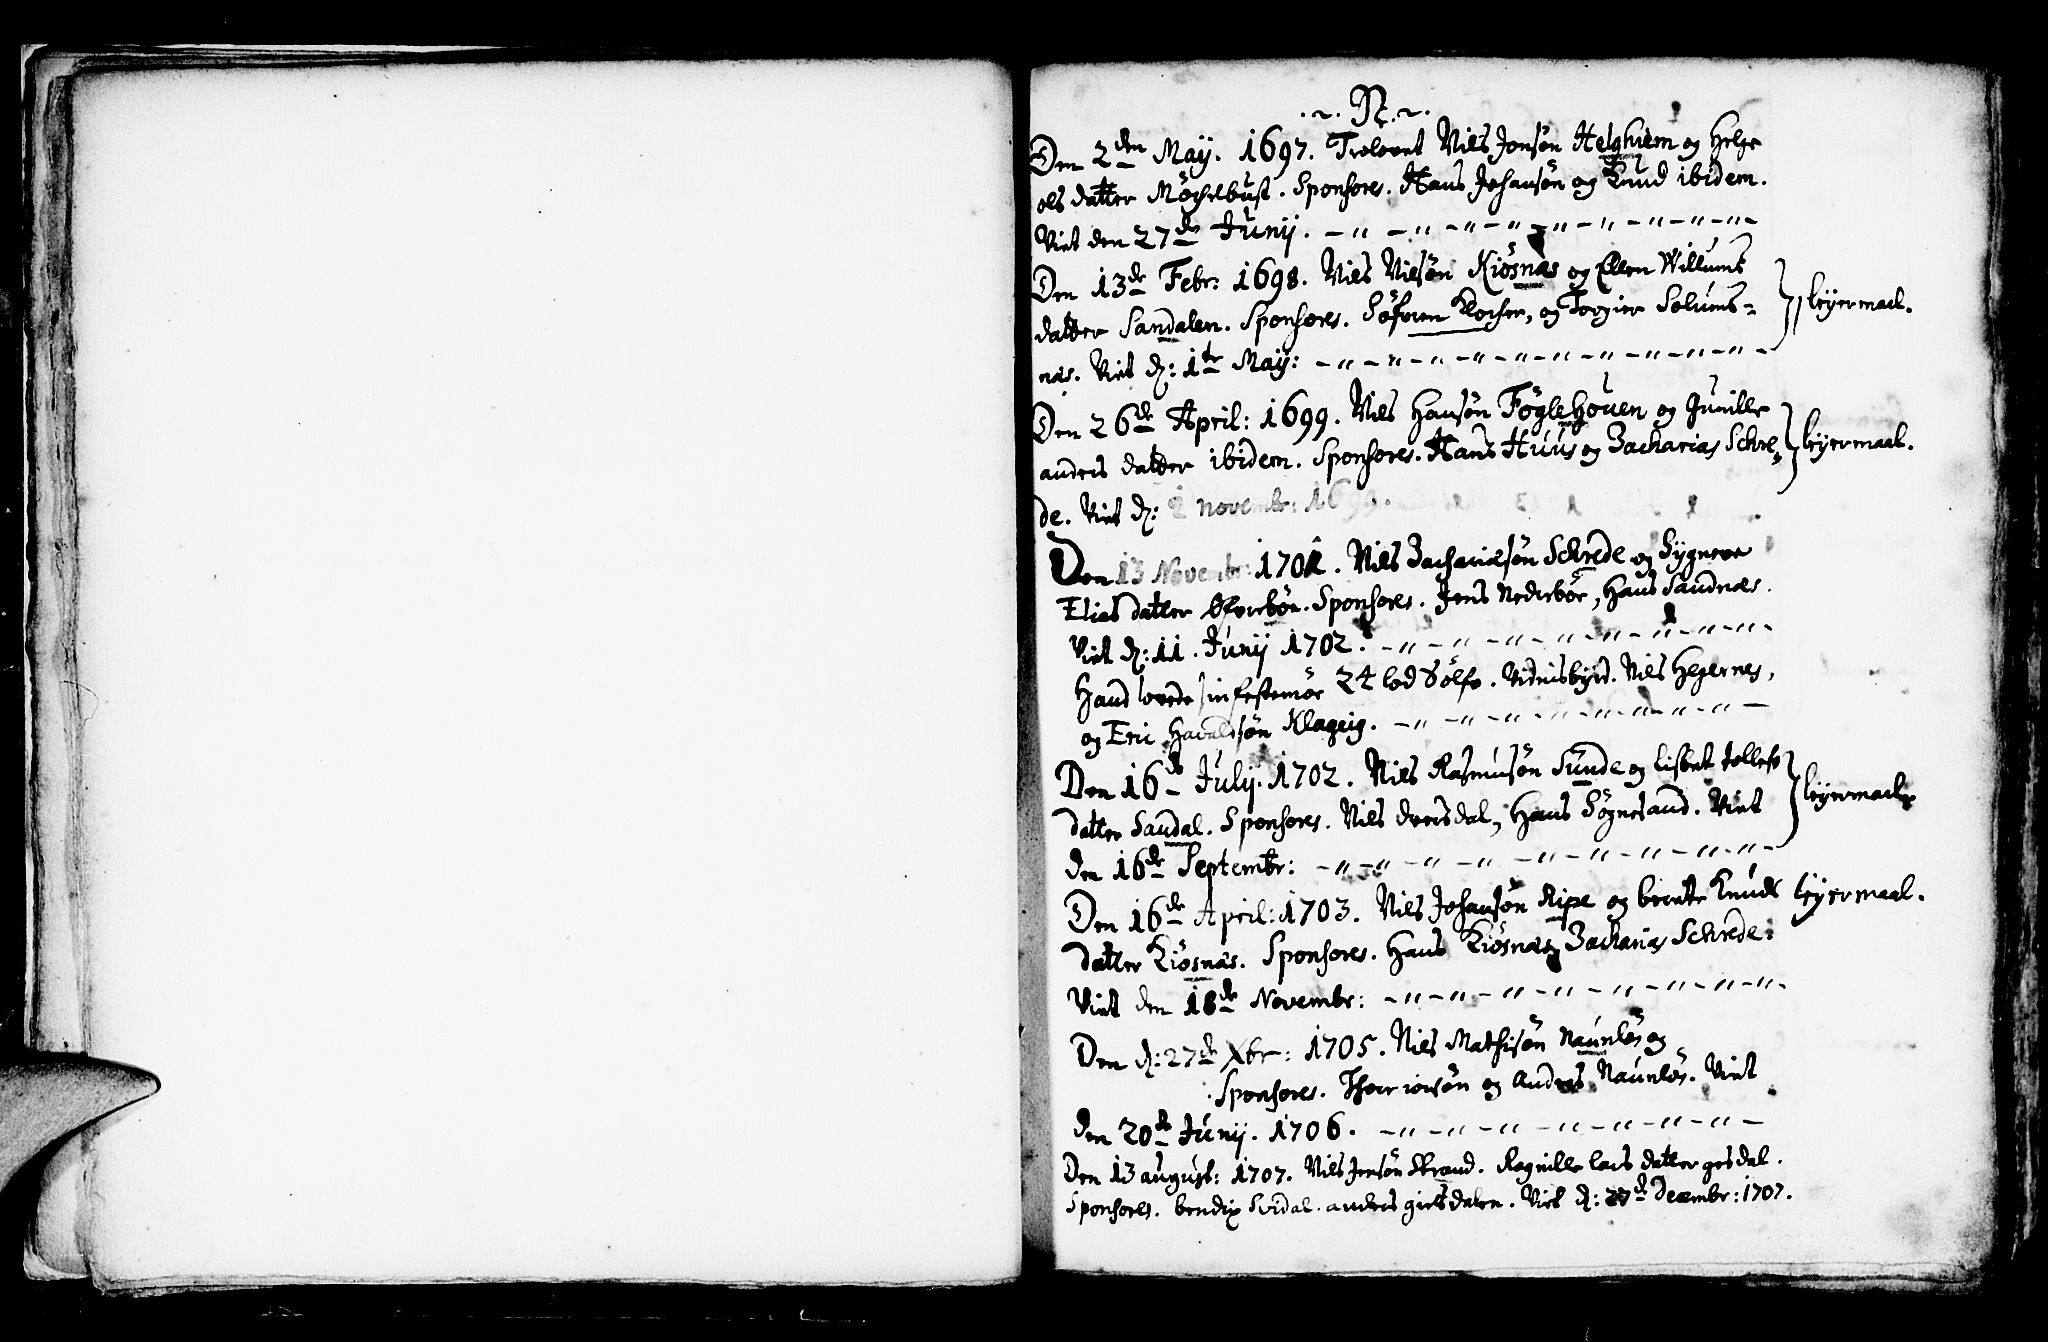 .~. N. ~.
Den 2den Maÿ. 1697. Trolovet Niels Jonsøn Helghiem og Helge
ols datter Møchlebust. Sponsores. Hans Johansøn og Knud ibidem.
Viet den 27de Junij. – " – " – " – " – " – " – " – " – " –
Den 13de Febr: 1698. Niels Nilsøn Kiøsnæs og Ellen Willums
datter Sandalen. Sponsores. Søfren Klocker, og Torgier Solums= } leÿermaal.
næs. Viet d: 1te Maÿ: – " – " – " – " – " – " – " – " – " – " –
Den 26de April: 1699. Niels Hansøn Føglehouen og Gunille
anders datter ibidem. Sponsores. Hans Huus og Zacharias Schre= } leÿermaal.
de. Viet d: 1 novembr: 1699.
Den 13 Novembr: 1701. Niels Zachariasøn Schrede og Sygneve
Elias datter Øfverbøe. Sponsores. Jens Nedrebøe, Hans Sandnæs.
Viet d: 11. Junij 1702. – " – " – " – " – " – " – " – " –
Hand lovede sin festemøe 24 lod Sølfv. Vidnisbÿrd. Niels Hegernes,
og Eric Havaldsøn Klageig. – " – " – " – " – " – " – " – " –
Den 16de Julij. 1702. Niels Rasmusøn Sunde og Lisbet Tollefs
datter Sandal. Sponsores. Niels dversdal, Hans Søgnesand. Viet } leÿermaal
den 16de Septembr: – " – " – " – " – " – " – " – " – " – " –
Den 16de April: 1703. Niels Johansøn Ripe og berete Knuds leÿermaal.
datter Kiøsnæs. Sponsores. Hans Kiøsnæs, Zacharias Schrede:
Viet den 18de Novembr: – " – " – " – " – " – " – " – " – " –
Den d: 27de Xbr: 1705. Niels Mathisøn Naunløs og
Sponsores. Thoer iensøn og Anders Naunløs. Viet
den 20de Junij. 1706. – " – " – " – " – " – " – " – " –
Den 13 august: 1707. Niels Jensøn Strand. Ragnille lars datter gesdal.
Sponsores. bendix Svidal. anders giesdalen. Viet d: 27de Decembr: 1707.